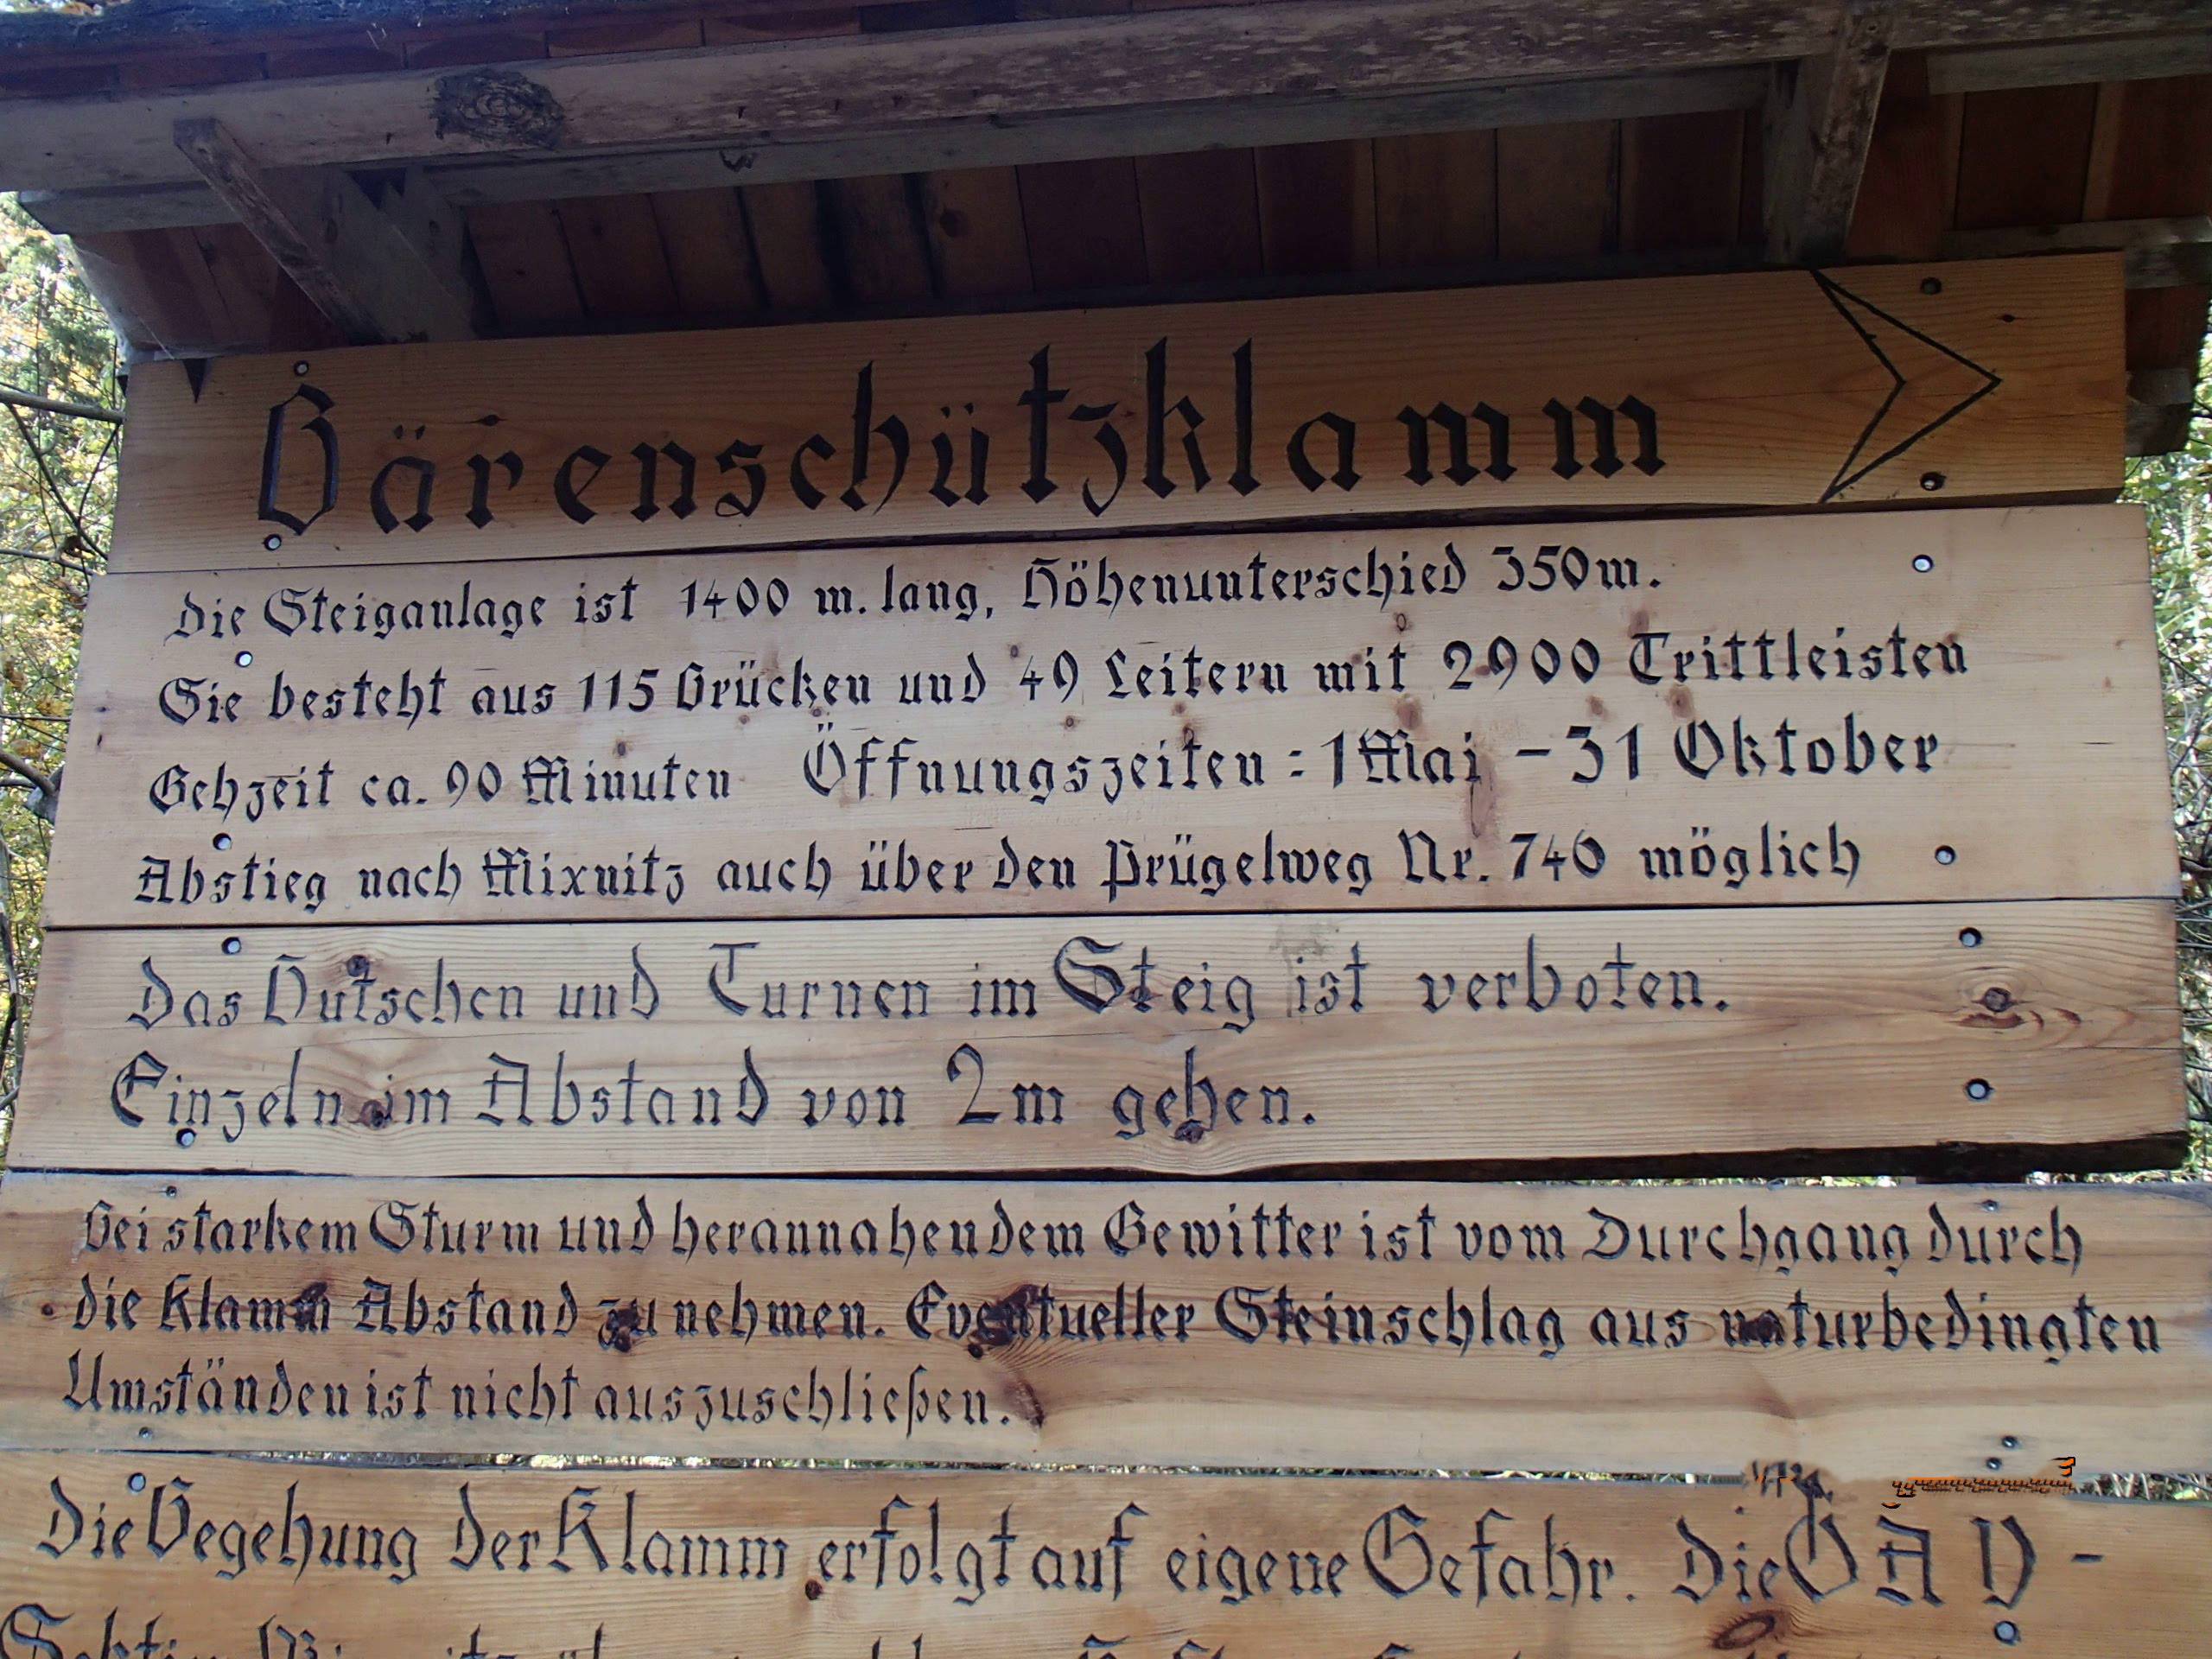 Bärenschützklamm
Die Steiganlage ist 1400 m. lang, Höhenunterschied 350m.
Sie besteht aus 115 Brücken und 49 Leitern mit 2900 Trittleisten
Gehzeit ca. 90 Minuten Öffnungszeiten : 1 Mai - 31 Oktober
Abstieg nach Mixnitz auch über den Prügelweg Nr. 746 möglich
Das Hutschen und Turnen im Steig ist verboten.
Einzeln im Abstand von 2m gehen.
Bei starkem Sturm und herannahendem Gewitter ist vom Durchgang durch
die Klamm Abstand zu nehmen. Eventueller Steinschlag aus naturbedingten
Umständen ist nicht auszuschließen.
Die Begehung der Klamm erfolgt auf eigene Gefahr. Die ÖAV -
Sektion